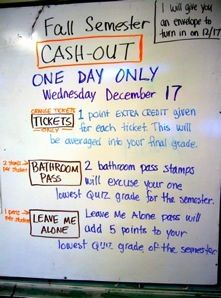 I will give you
an envelope to
turn in on 12/17
Fall Semester
CASH-OUT
ONE DAY ONLY
Wednesday December 17
ORANGE TICKETS
TICKETS
ONLY
1 point EXTRA CREDIT given
for each ticket. This will
be averaged into your final grade.
per student
BATHROOM
PASS
2 bathroom pass stamps
will excuse your one
lowest Quiz grade for the semester.
1 pass
per student
LEAVE ME
ALONE
Leave Me Alone pass will
add 5 points to your
lowest Quiz grade of the semester.